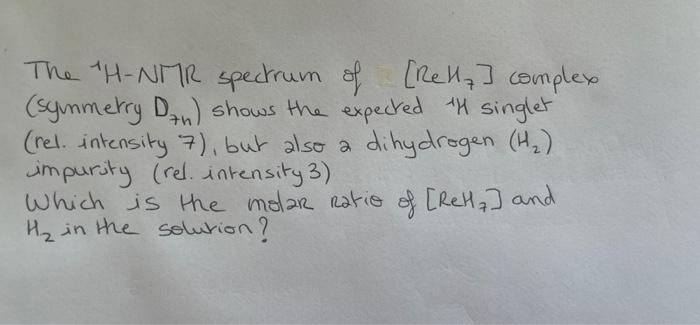 The ¹H-NMR spectrum of [ReH₇] complex
(symmetry D₇ₕ) shows the expected ¹H singlet
(rel. intensity 7), but also a dihydrogen (H₂)
impurity (rel. intensity 3)
Which is the molar ratio of [ReH₇] and
H₂ in the solution?